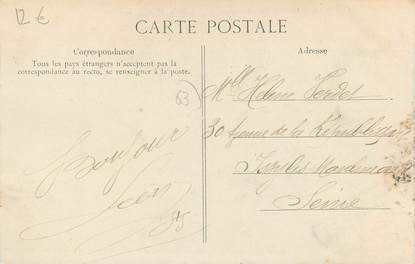 12 €
CARTE POSTALE
Correspondance
Tous les pays étrangers n'acceptent pas la
correspondance au recto, se renseigner à la poste.
Bonjour
63
Adresse
Mlle Helene
30 Avenue de la République
Issy les Moulineaux
Seine